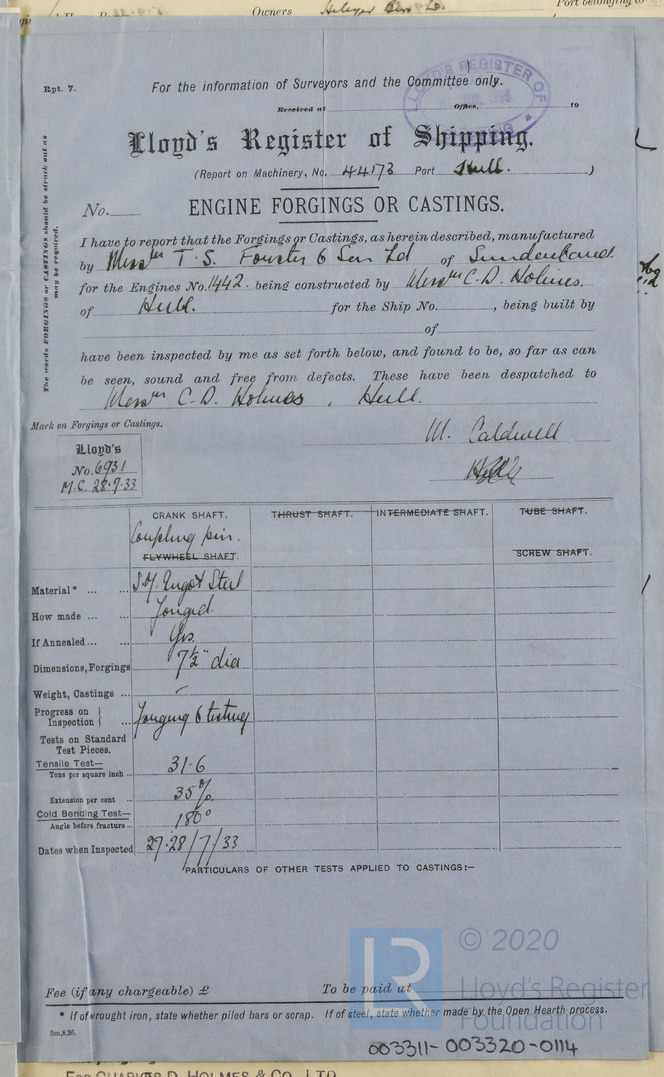 Owners
Port belonging to
Rpt. 7.
For the information of Surveyors and the Committee only.
Received at Office, 19
LLOYD'S REGISTER OF
Lloyd's Register of Shipping.
(Report on Machinery, No. 44173 Port Hull. )
No.
ENGINE FORGINGS OR CASTINGS.
The words FORGINGS or CASTINGS should be struck out as
may be required.
I have to report that the Forgings or Castings, as herein described, manufactured
by Messrs T. S. Forster & Son Ltd of Sunderland
for the Engines No. 1442. being constructed by Messrs C. D. Holmes.
of Hull. for the Ship No. , being built by
of
have been inspected by me as set forth below, and found to be, so far as can
be seen, sound and free from defects. These have been despatched to
Messrs C. D. Holmes, Hull.
Mark on Forgings or Castings.
M. Caldwell
Lloyd's
No. 6931
M.C. 28.7.33
CRANK SHAFT. THRUST SHAFT. INTERMEDIATE SHAFT. TUBE SHAFT.
Coupling pin.
FLYWHEEL SHAFT. SCREW SHAFT.
Material* ... ... S.M. Ingot Steel
How made ... ... Forged.
If Annealed ... ... Yes.
Dimensions, Forgings 7½" dia
Weight, Castings ... –
Progress on
Inspection ... Forging & testing
Tests on Standard
Test Pieces.
Tensile Test—
Tons per square inch ... 31.6
Extension per cent ... 35%
Cold Bending Test—
Angle before fracture ... 180°
Dates when Inspected 27.28/7/33
PARTICULARS OF OTHER TESTS APPLIED TO CASTINGS:—
© 2020
Lloyd's Register
Foundation
Fee (if any chargeable) £ To be paid at
* If of wrought iron, state whether piled bars or scrap. If of steel, state whether made by the Open Hearth process.
5m,8,26.
003311-003320-0114
FOR CHARLES D. HOLMES & CO., LTD.